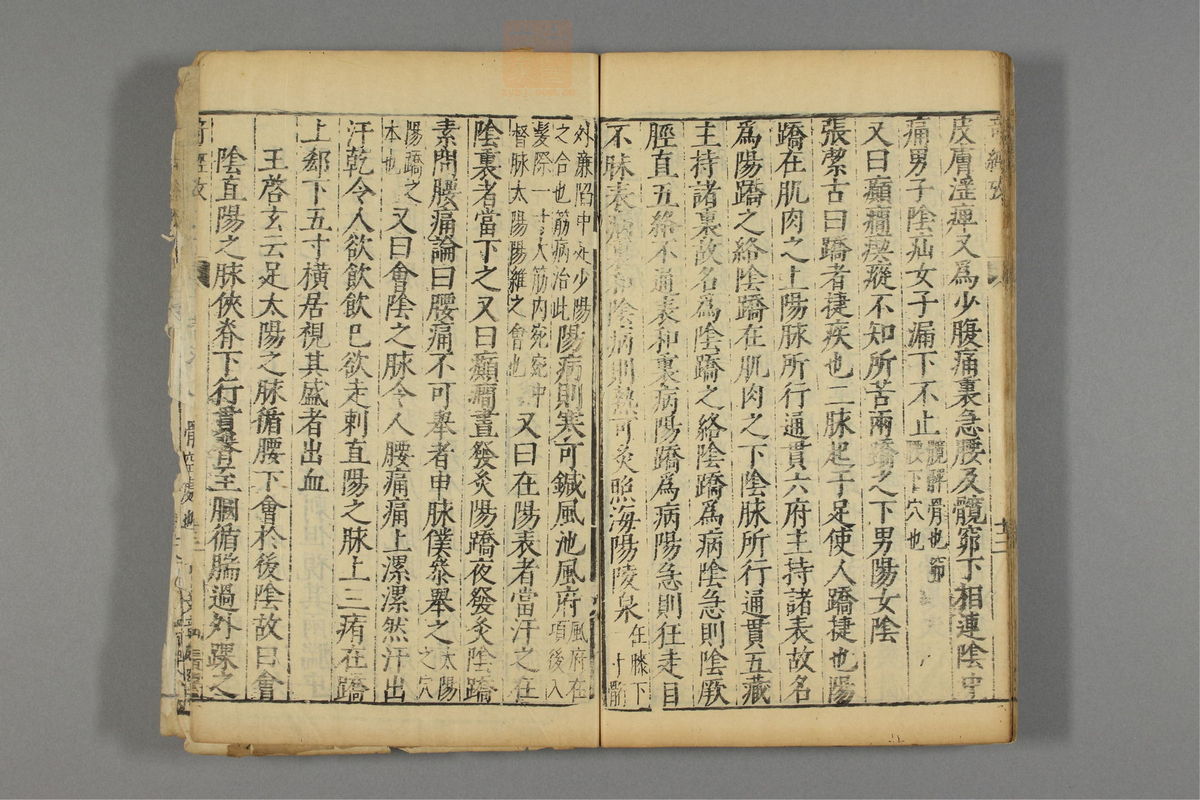 皮膚淫痺又為少腹痛裏急腰及髖窌下相連陰中
痛男子陰疝女子漏下不止髖髀骨也窌腰下穴也
又曰癲癇瘈瘲不知所苦兩蹻之下男陽女陰
張潔古曰蹻者捷疾也二脉起于足使人蹻捷也陽
蹻在肌肉之上陽脉所行通貫六府主持諸表故名
為陽蹻之絡陰蹻在肌肉之下陰脉所行通貫五藏
主持諸裏故名為陰蹻之絡陰蹻為病陰急則陰厥
脛直五絡不通表和裏病陽蹻為病陽急則狂走目
不昧表病裏和陰病則熱可灸照海陽陵泉在膝下一寸䯒
外廉陷中足少陽之合也筋病治此陽病則寒可鍼風池風府風府在項後入
髮際一寸大筋內宛宛中督脉太陽陽維之會也又曰在陽表者當汗之在
陰裏者當下之又曰癲癇晝發灸陽蹻夜發灸陰蹻
素問腰痛論曰腰痛不可舉者申脉僕參舉之太陽之穴
陽蹻之本也又曰會陰之脉令人腰痛痛上漯漯然汗出
汗乾令人欲飲飲已欲走刺直陽之脉上三痏在蹻
上郄下五寸橫居視其盛者出血
王啓玄云足太陽之脉循腰下會於後陰故曰會
陰直陽之脉俠脊下行貫臀至膕循腨過外踝之